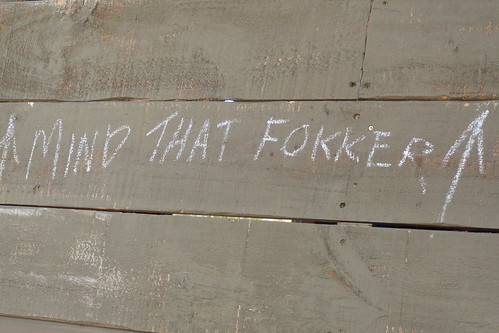 MIND THAT FOKKER